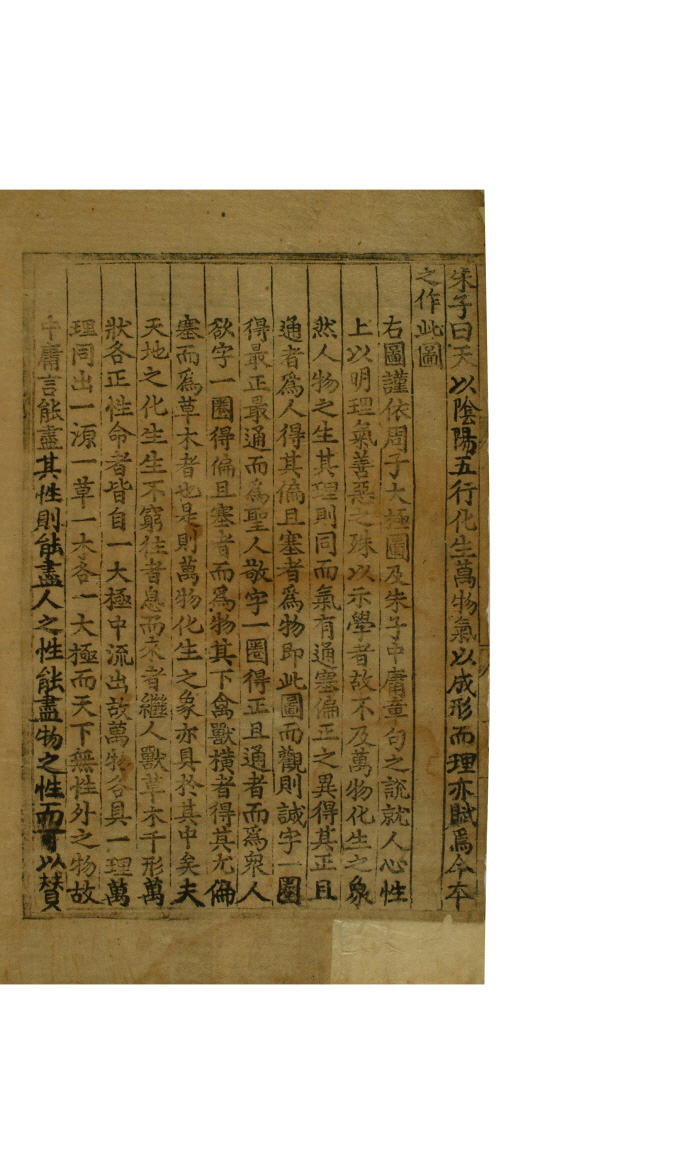 朱子曰天以陰陽五行化生萬物氣以成形而理亦賦焉今本
之作此圖
右圖謹依周子大極圖及朱子中庸章句之說就人心性
上以明理氣善惡之殊以示學者故不及萬物化生之象
然人物之生其理則同而氣有通塞偏正之異得其正且
通者爲人得其偏且塞者爲物即此圖而觀則誠字一圈
得最正最通而爲聖人敬字一圈得正且通者而爲衆人
欲字一圈得偏且塞者而爲物其下禽獸橫者得其尤偏
塞而爲草木者也是則萬物化生之象亦具於其中矣夫
天地之化生生不窮往者息而來者繼人獸草木千形萬
狀各正性命者皆自一大極中流出故萬物各具一理萬
理同出一源一草一木各一大極而天下無性外之物故
中庸言能盡其性則能盡人之性能盡物之性而可以贊